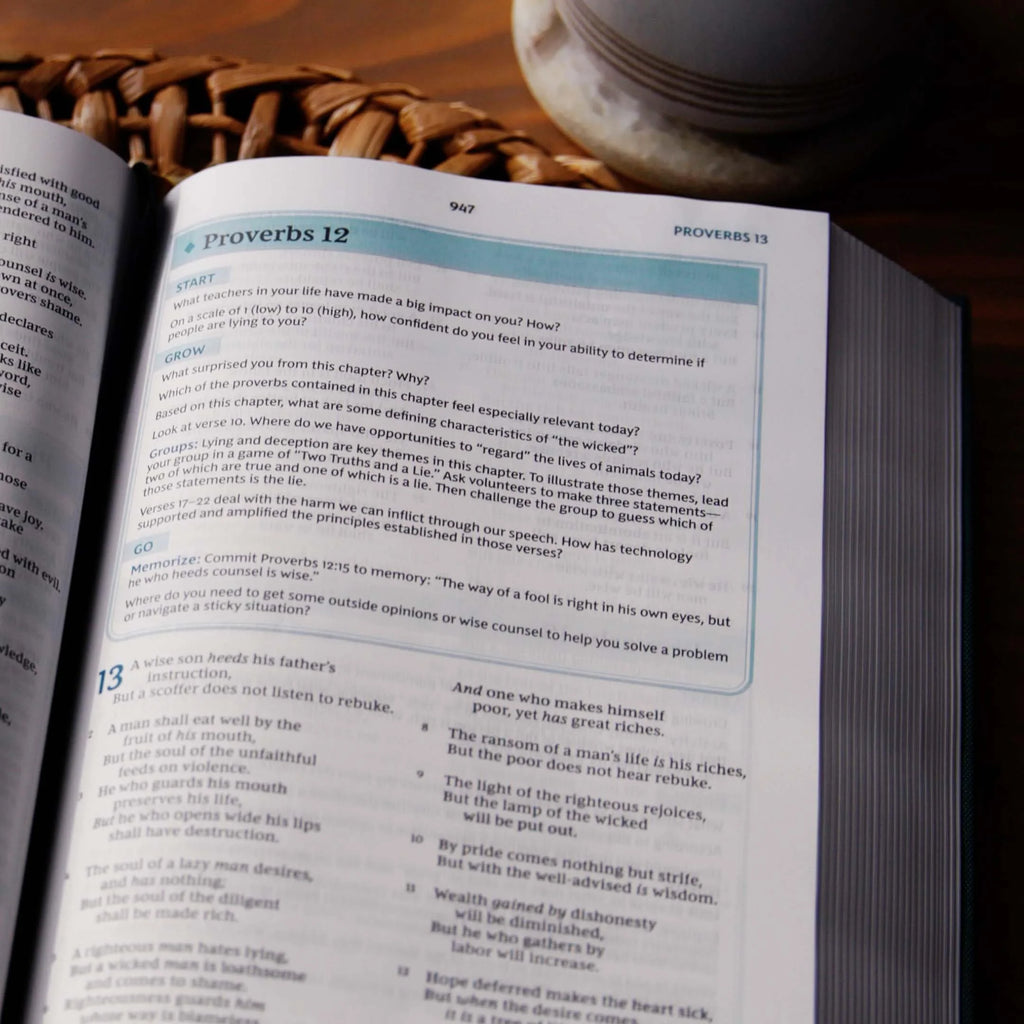 isfied with good
his mouth,
nse of a man's
endered to him.
right
ounsel is wise.
wn at once,
overs shame.
declares
ceit.
ks like
word,
rise
for a
nose
ave joy,
take
d with evil.
on
y
wledge,
e,
947
PROVERBS 13
Proverbs 12
START
What teachers in your life have made a big impact on you? How?
On a scale of 1 (low) to 10 (high), how confident do you feel in your ability to determine if
people are lying to you?
GROW
What surprised you from this chapter? Why?
Which of the proverbs contained in this chapter feel especially relevant today?
Based on this chapter, what are some defining characteristics of "the wicked"?
Look at verse 10. Where do we have opportunities to "regard" the lives of animals today?
Groups: Lying and deception are key themes in this chapter. To illustrate those themes, lead
your group in a game of "Two Truths and a Lie." Ask volunteers to make three statements—
two of which are true and one of which is a lie. Then challenge the group to guess which of
those statements is the lie.
Verses 17–22 deal with the harm we can inflict through our speech. How has technology
supported and amplified the principles established in those verses?
GO
Memorize: Commit Proverbs 12:15 to memory: "The way of a fool is right in his own eyes, but
he who heeds counsel is wise."
Where do you need to get some outside opinions or wise counsel to help you solve a problem
or navigate a sticky situation?
13 A wise son heeds his father's
instruction,
But a scoffer does not listen to rebuke.
2 A man shall eat well by the
fruit of his mouth,
But the soul of the unfaithful
feeds on violence.
3 He who guards his mouth
preserves his life,
But he who opens wide his lips
shall have destruction.
4 The soul of a lazy man desires,
and has nothing;
But the soul of the diligent
shall be made rich.
5 A righteous man hates lying,
But a wicked man is loathsome
and comes to shame.
6 Righteousness guards him
whose way is blameless
And one who makes himself
poor, yet has great riches.
8 The ransom of a man's life is his riches,
But the poor does not hear rebuke.
9 The light of the righteous rejoices,
But the lamp of the wicked
will be put out.
10 By pride comes nothing but strife,
But with the well-advised is wisdom.
11 Wealth gained by dishonesty
will be diminished,
But he who gathers by
labor will increase.
12 Hope deferred makes the heart sick,
But when the desire comes,
it is a tree of